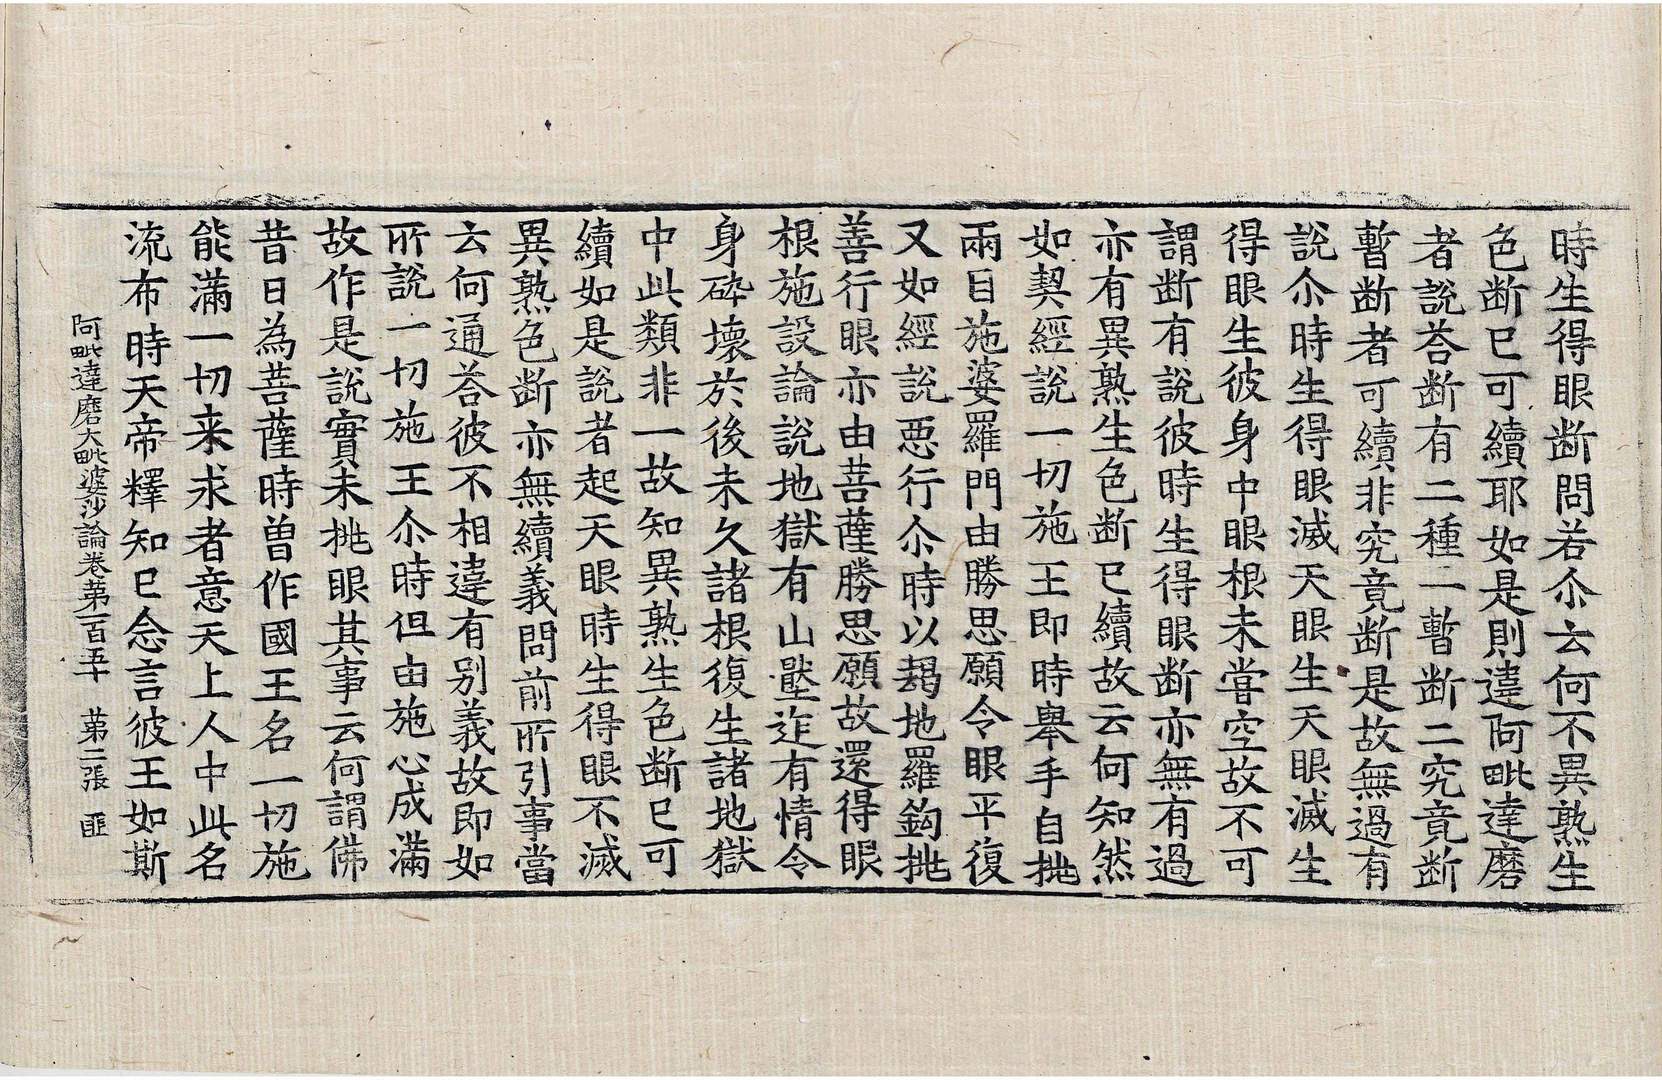 時生得眼断問若尒云何不異熟生
色断已可續耶如是則違阿毗達磨
者說荅断有二種一暫断二究竟断
暫断者可續非究竟断是故無過有
說尒時生得眼滅天眼生天眼滅生
得眼生彼身中眼根未嘗空故不可
謂断有說彼時生得眼断亦無有過
亦有異熟生色断已續故云何知然
如契經說一切施王即時舉手自挑
兩目施婆羅門由勝思願令眼平復
又如經說惡行尒時以朅地羅鉤挑
善行眼亦由菩薩勝思願故還得眼
根施設論說地獄有山壓迮有情令
身碎壞於後未久諸根復生諸地獄
中此類非一故知異熟生色断已可
續如是說者起天眼時生得眼不滅
異熟色断亦無續義問前所引事當
云何通荅彼不相違有別義故即如
所說一切施王尒時但由施心成滿
故作是說實未挑眼其事云何謂佛
昔日為菩薩時曽作國王名一切施
能滿一切来求者意天上人中此名
流布時天帝釋知已念言彼王如斯
阿毗達磨大毗婆沙論卷第一百五十　第二張　匪